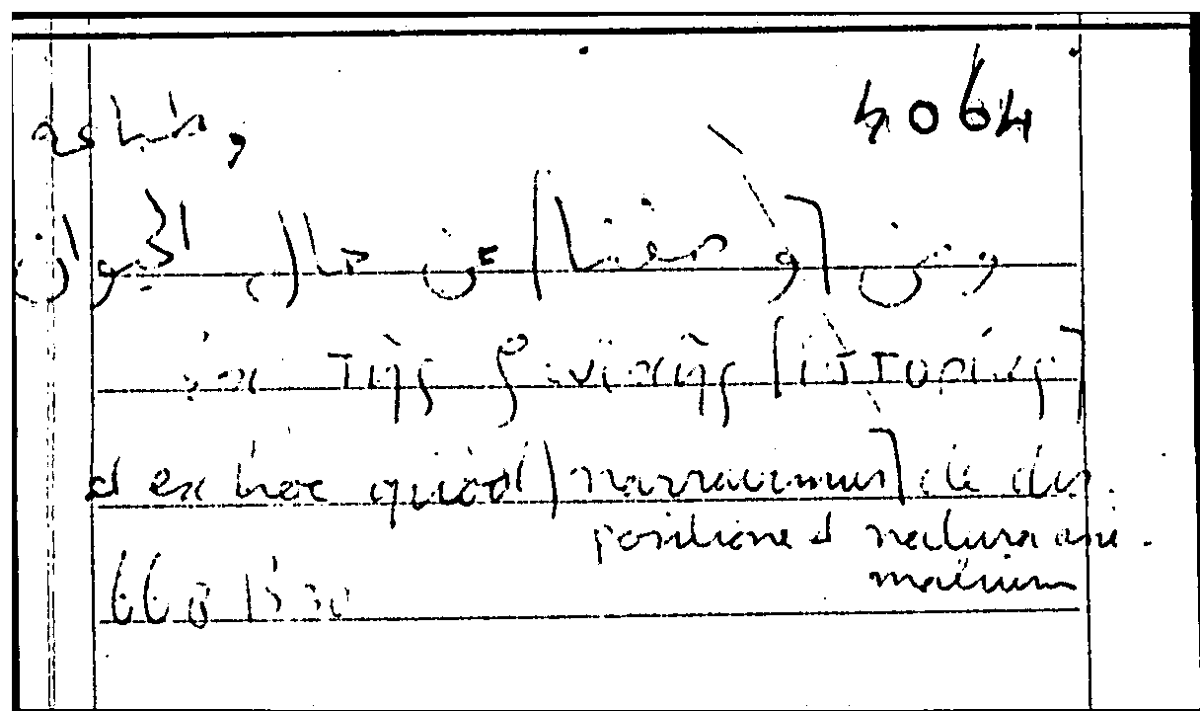 4064 وطباعه
ومن [وصفنا] عن حال الحيوان
ἐκ τῆς ζωϊκῆς [ἱστορίας]
et ex hoc quod [narravimus] de dis-
positione et natura ani-
malium
668 b 30